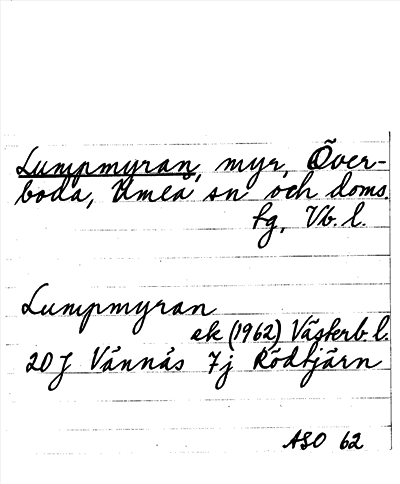 Lumpmyran, myr, Över-
boda, Umeå sn och doms.
hg, Vb. l.
Lumpmyran
ek (1962) Västerb. l.
20 J Vännäs 7 j Rödtjärn
ASO 62